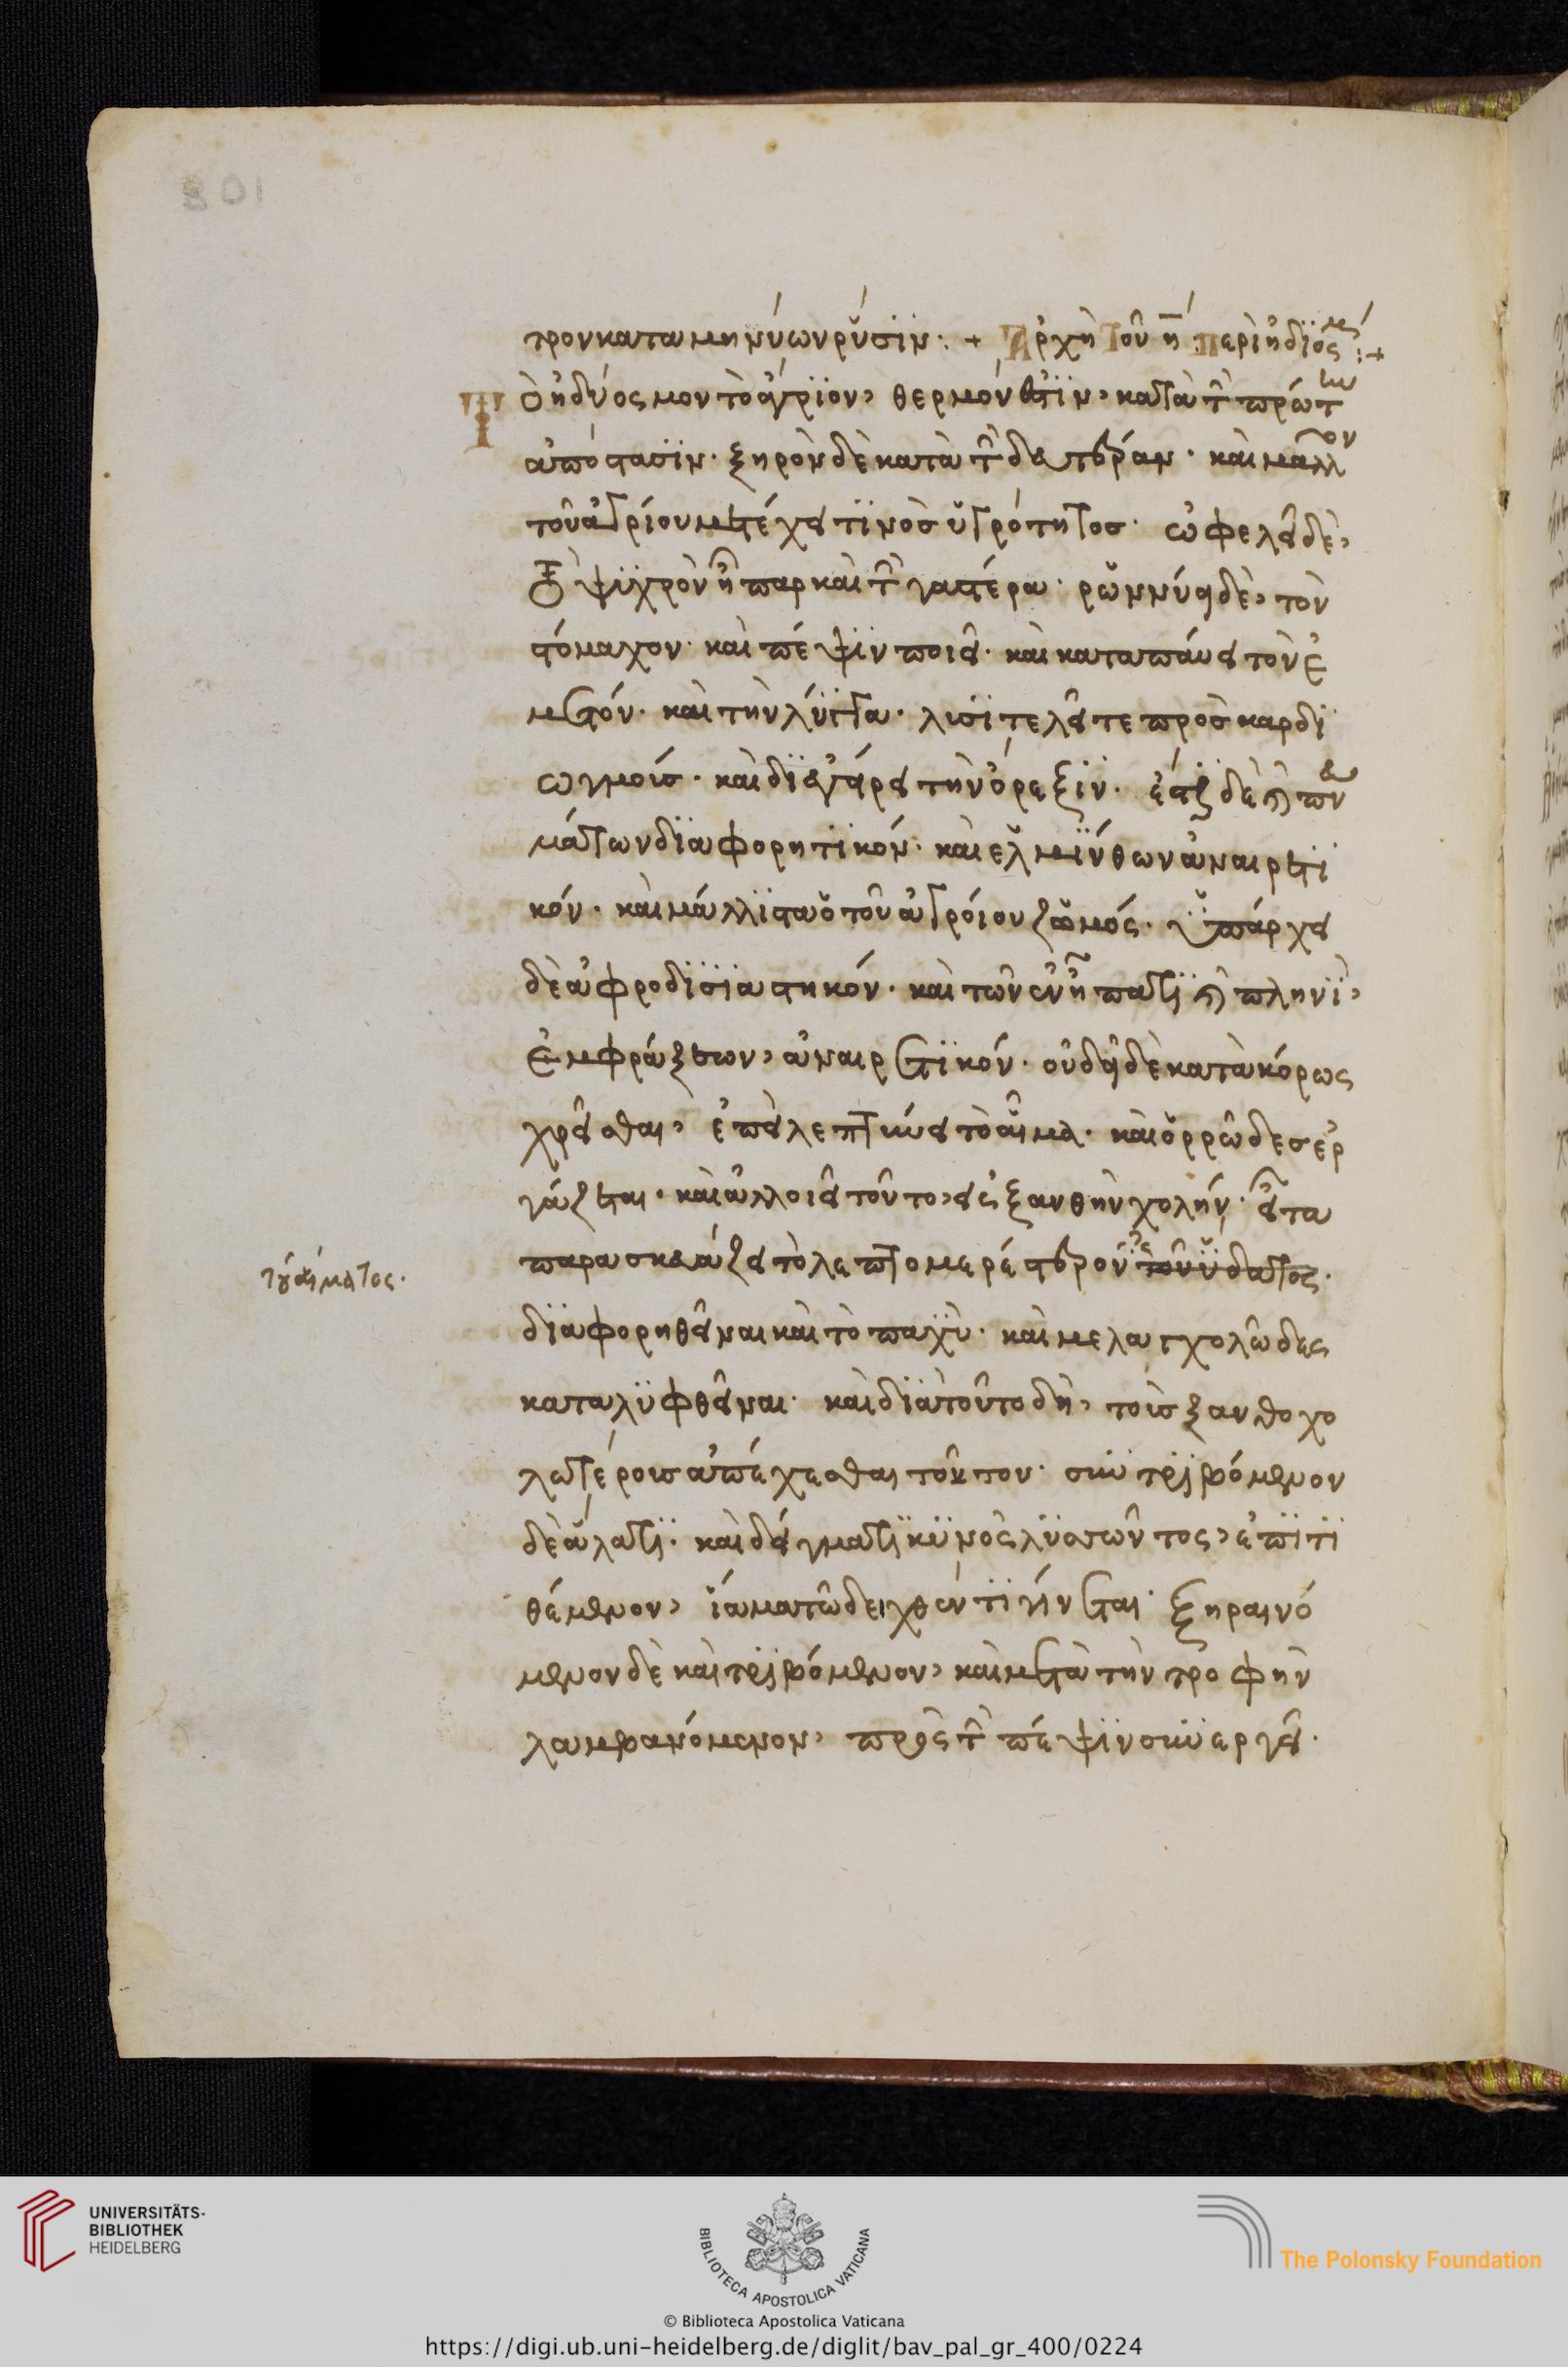 τρον καταμηνύων ρύσϊν: + Ἀρχὴ τοῦ η̄ περὶ ἡδϊόσμ :+
Τὸ ἡδύοσμον τὸ ἄγρϊον, θερμόν ἐστϊν, κατὰ τ̀ πρώτην
ἀπόστασϊν. ξηρὸν δὲ κατὰ τ̀ δευτέραν. καὶ μᾶλλον
τοῦ ἀγρίου μετέχει τϊνὸσ ὑγρότητοσ. ὠφελεῖ δὲ,
τὸ ψϋχρὸν ἧπαρ καὶ τ̀ γαστέρα. ρώννύει δὲ, τὸν
στόμαχον. καὶ πέψϊν ποιεῖ. καὶ καταπαύει τὸν ἐ
μετόν. καὶ τὴν λύττα. λυσϊτελεῖ τε πρὸσ καρδϊ
ωγμοὺσ. καὶ δϊεγείρει τὴν ὄρεξϊν. ἐστὶ δὲ καὶ πνευ
μάτων δϊαφορητϊκόν. καὶ ἑλμΐνθων ἀναιρετϊ
κόν. καὶ μάλλϊστα ὁ τοῦ ἀγρίου ζωμός. ὑπάρχει
δὲ ἀφροδϊσϊαστηκόν. καὶ τῶν ἐν ἥπατϊ καὶ πληνὶ,
ἐμφράξεων, ἀναιρετϊκόν. οὐ δεῖ δὲ κατὰ κόρως
χρεῖσθαι, ἐπεὶ λεπτύνει τὸ αἷμα. καὶ ὀρρῶδεσ ἐρ
γάζεται. καὶ ἀλλοιεῖ τοῦτο, εἰσ ξανθὴν χολήν. εἶτα
παρασκευάζει τὸ λεπτομερέστερον τοῦ ὕδατος.
τοῦ αἵματος.
δϊαφορηθεῖναι καὶ τὸ παχϋ. καὶ μελαγχολῶδες
καταλϋφθεῖναι. καὶ δϊὰ τοῦτο δὴ, τοὺσ ξανθοχο
λωτέρουσ ἀπέχεσθαι τούτου. σὺν τρϊβόμενον
δὲ ἅλατϊ. καὶ δείγματϊ κϋνὸς λϋσσῶντος, ἐπϊτϊ
θέμενον, ἴαμα τῶ δειχθέντϊ γίνεται. ξηραινό
μενον δὲ καὶ τρϊβόμενον, καὶ μετὰ τὴν τροφὴν
λαμβανόμενον, πρὸς τ̀ πέψϊν συνεργεῖ.
UNIVERSITÄTS-
BIBLIOTHEK
HEIDELBERG
BIBLIOTECA APOSTOLICA VATICANA
© Biblioteca Apostolica Vaticana
The Polonsky Foundation
https://digi.ub.uni-heidelberg.de/diglit/bav_pal_gr_400/0224